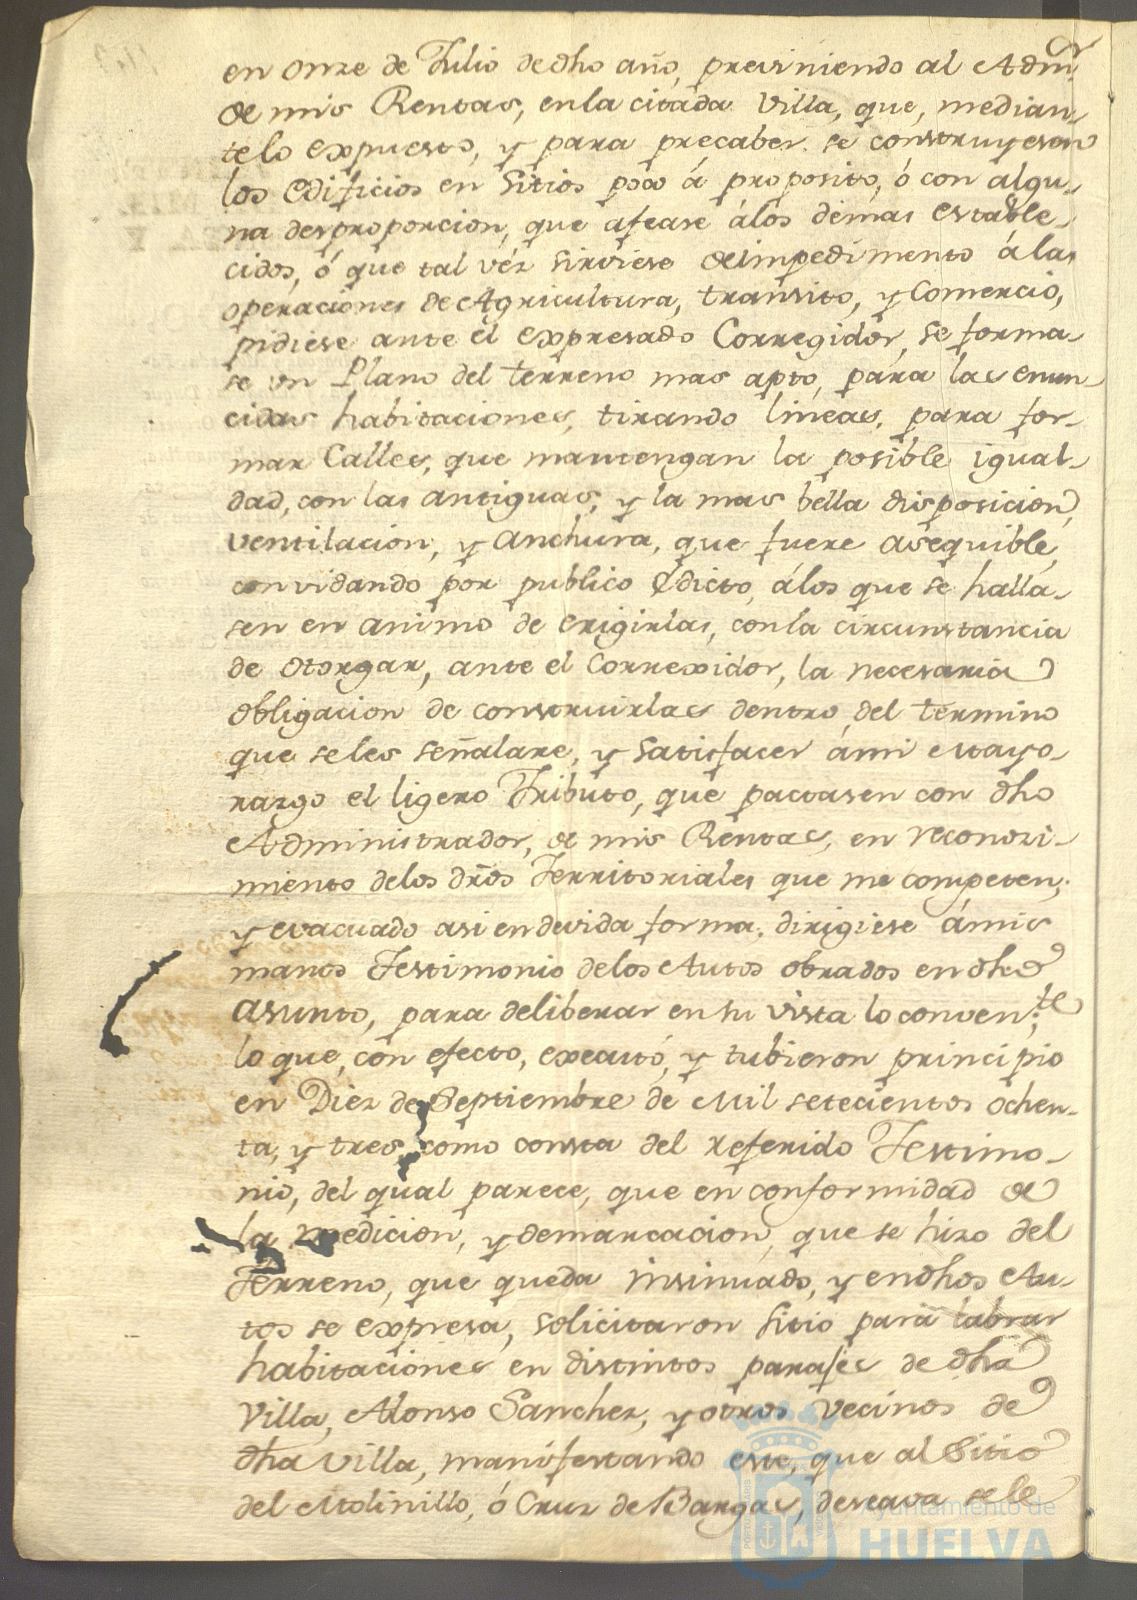 en onze de Julio de dho año, previniendo al Admor
de mis Rentas, en la citada Villa, que, median-
te lo expuesto, y para precaber se construyesen
los edificios en sitios poco á proposito, ó con algu-
na desproporcion, que afease álos demas estable-
cidos, ó que tal véz sirviese de impedimento á las
operaciones de Agricultura, transito, y Comercio,
pidiese ante el expresado Corregidor, se forma-
se un Plano del terreno mas apto, para las enun-
cidas habitaciones, tirando lineas, para for-
mar Calles, que mantengan la posible igual-
dad, con las antiguas, y la mas bella disposicion,
ventilacion, y anchura, que fuere asequible,
convidando por publico Edicto, álos que se halla-
sen en animo de erigirlas, con la circunstancia
de otorgar, ante el Correxidor, la necesaria
obligacion de construirlas dentro del termino
que se les señalare, y satisfacer ámi Mayo-
razgo el ligero Tributo, que pactasen con dho
Administrador, de mis Rentas, en reconozi-
miento delos dr̃os Territoriales que me competen;
y evacuado asi en devida forma, dirigiese ámis
manos Testimonio delos Autos obrados en dho
asunto, para deliberar en su vista lo conven.te
lo que, con efecto, executó, y tubieron principio
en Diez de Septiembre de Mil setecientos ochen-
ta, y tres, como consta del referido Testimo-
nio, del qual parece, que en conformidad de
la medicion, y demarcacion, que se hizo del
Terreno, que queda insinuado, y en dhos Au-
tos se expresa, solicitaron sitio para labrar
habitaciones en distintos parajes de dha
Villa, Alonso Sanchez, y otros vecinos de
dha Villa, manifestando este, que al Sitio
del Molinillo, ó Cruz de Bargas, deseava se le
Ayuntamiento de
HUELVA